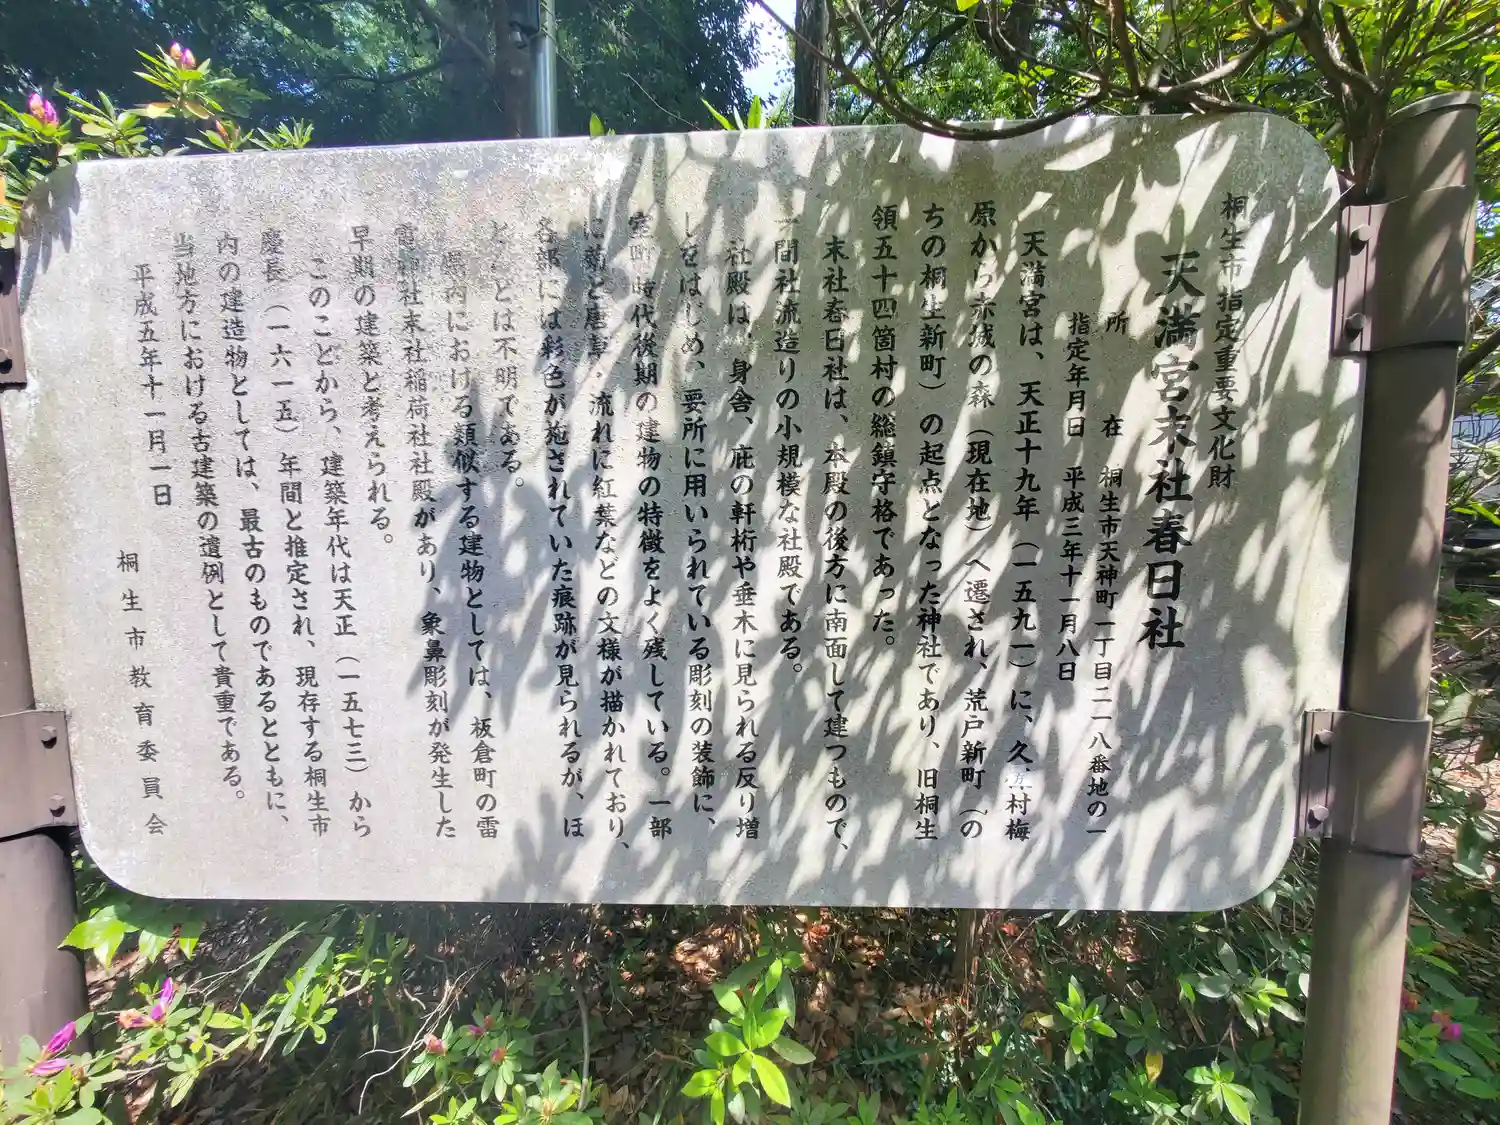 桐生市指定重要文化財
天満宮末社春日社
所在 桐生市天神町一丁目二一八番地の一
指定年月日 平成三年十一月八日
天満宮は、天正十九年（一五九一）に、久方村梅
原から赤城の森（現在地）へ遷され、荒戸新町（の
ちの桐生新町）の起点となった神社であり、旧桐生
領五十四箇村の総鎮守格であった。
末社春日社は、本殿の後方に南面して建つもので、
一間社流造りの小規模な社殿である。
社殿は、身舎、庇の軒桁や垂木に見られる反り増
しをはじめ、要所に用いられている彫刻の装飾に、
室町時代後期の建物の特徴をよく残している。一部
に菊と唐草、流れに紅葉などの文様が描かれており、
各部には彩色が施されていた痕跡が見られるが、ほ
とんどは不明である。
県内における類似する建物としては、板倉町の雷
電神社末社稲荷社社殿があり、象鼻彫刻が発生した
早期の建築と考えられる。
このことから、建築年代は天正（一五七三）から
慶長（一六一五）年間と推定され、現存する桐生市
内の建造物としては、最古のものであるとともに、
当地方における古建築の遺例として貴重である。
平成五年十一月一日
桐生市教育委員会